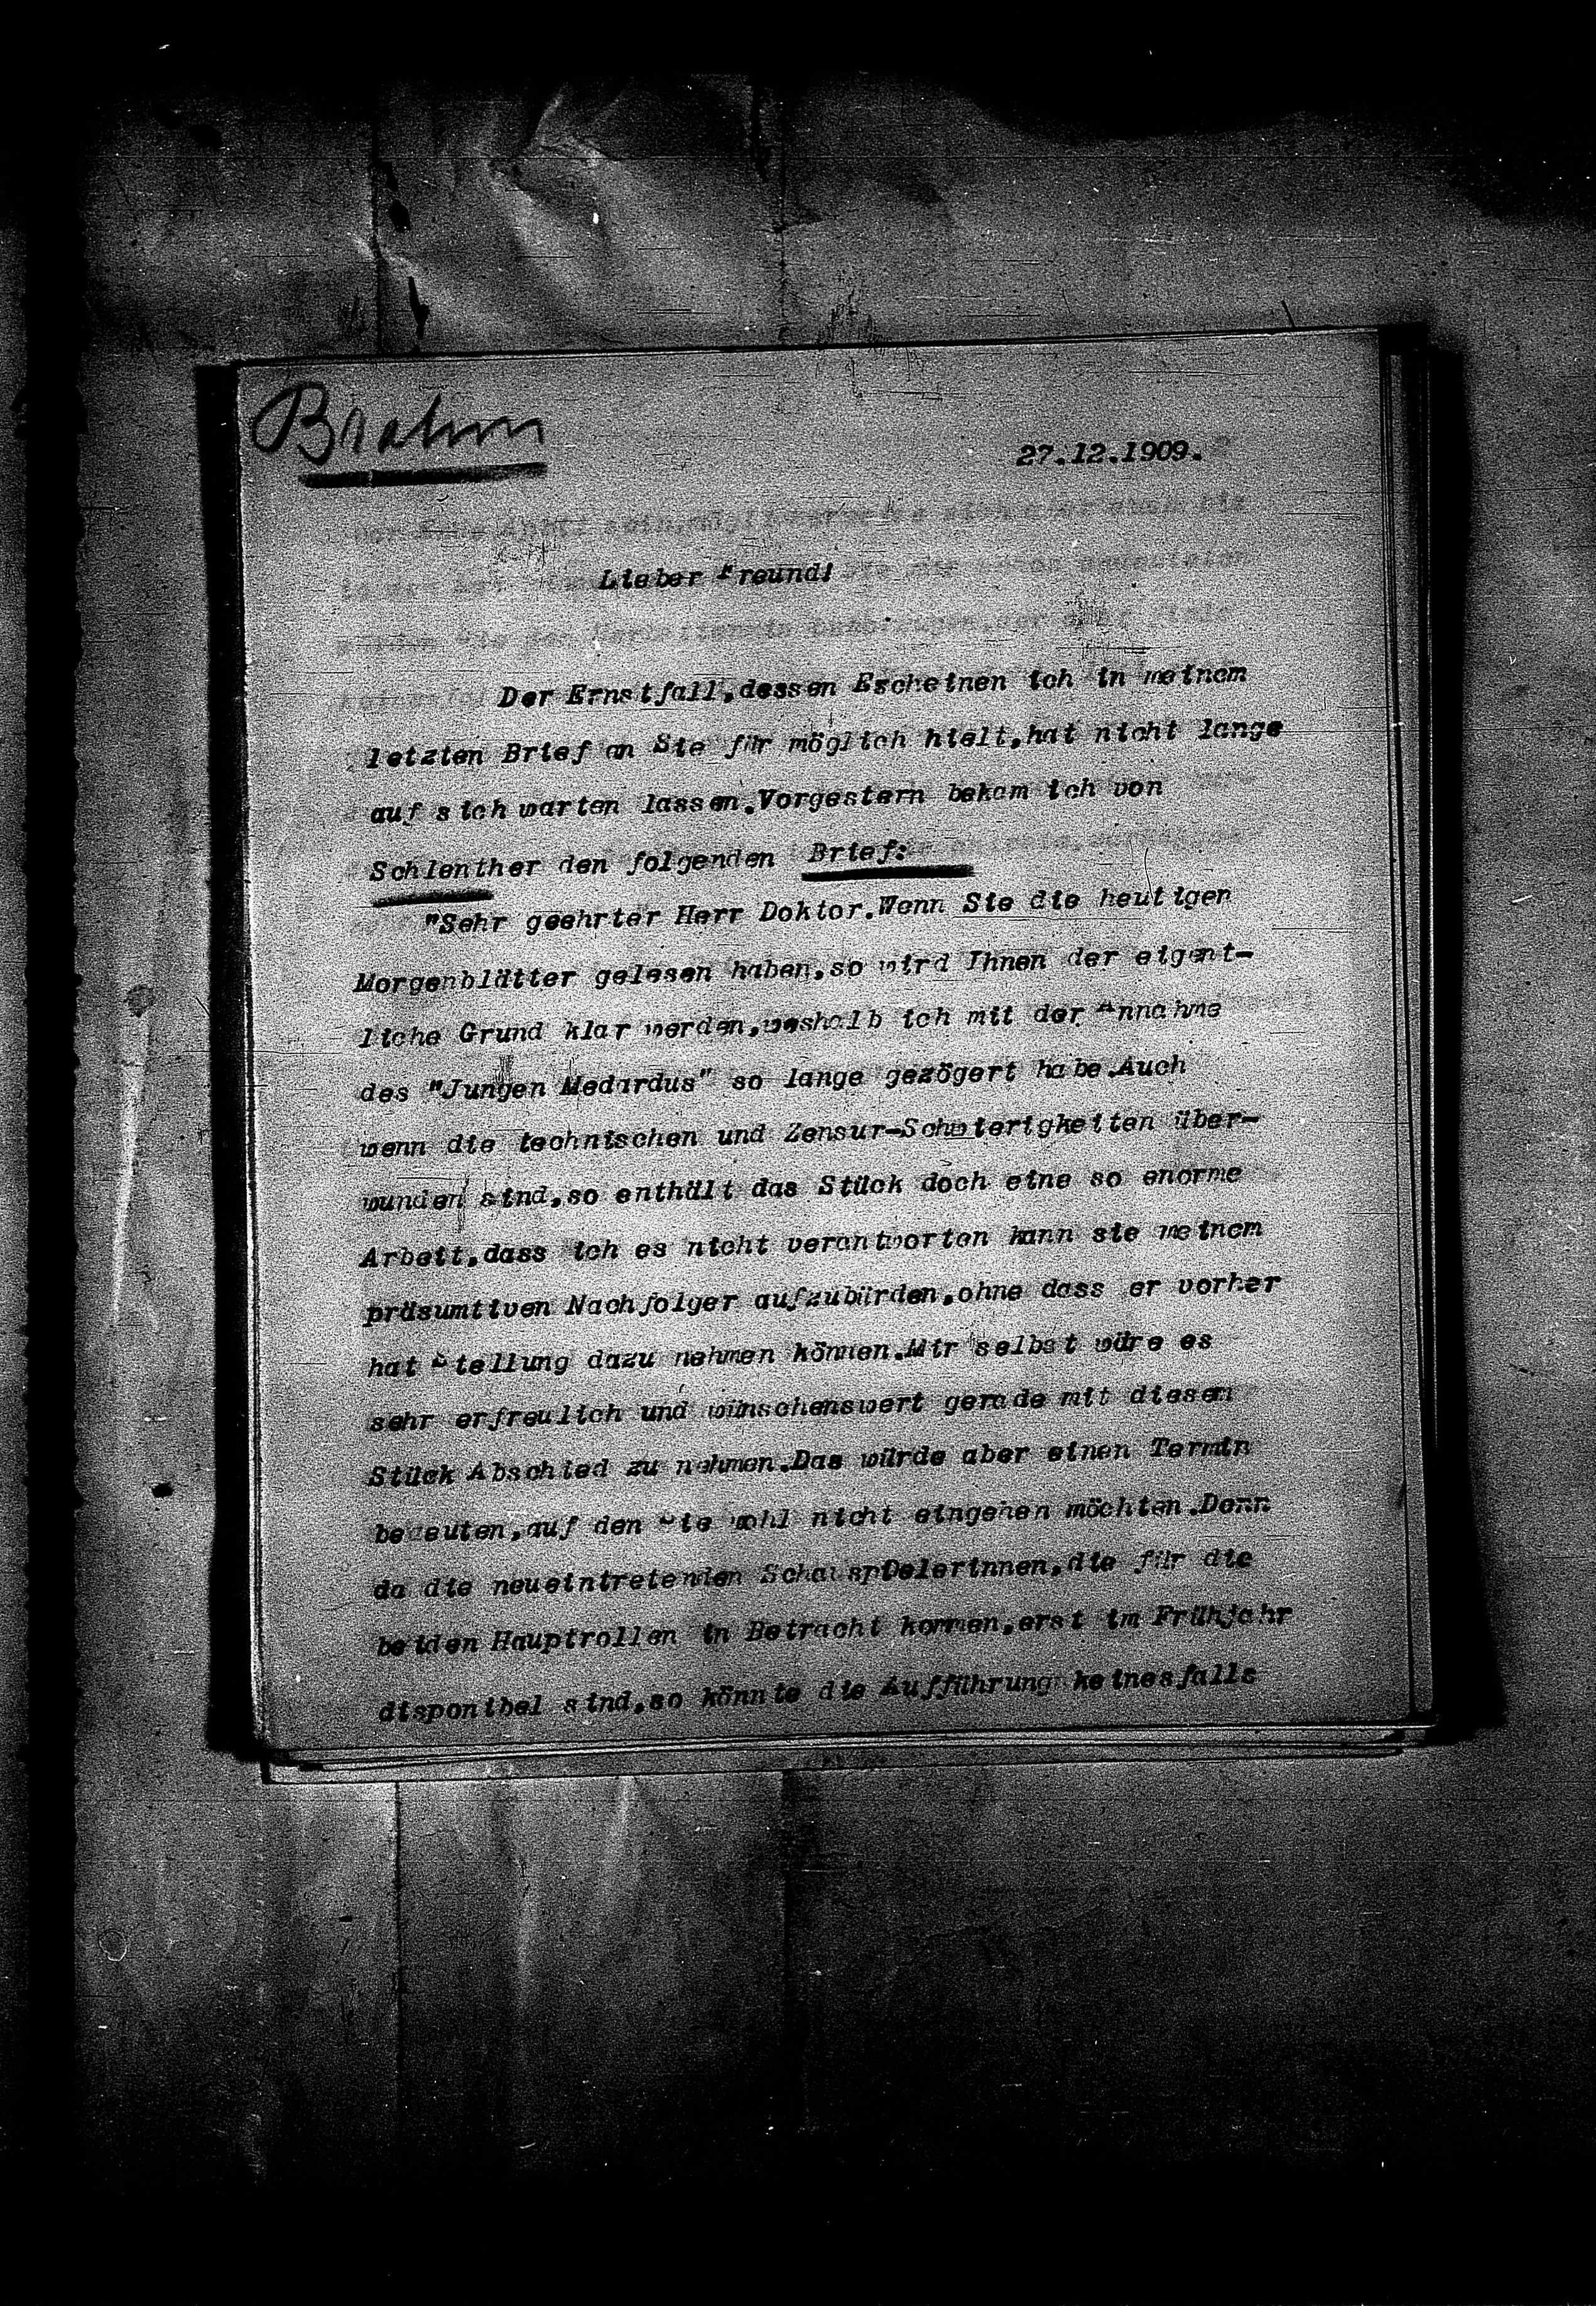 Brahm
27.12.1909.
Lieber Freund!
Der Ernstfall,dessen Escheinen ich in meinem
letzten Brief an Sie für möglich hielt,hat nicht lange
auf sich warten lassen.Vorgestern bekam ich von
Schlenther den folgenden Brief:
"Sehr geehrter Herr Doktor.Wenn Sie die heutigen
Morgenblätter gelesen haben,so wird Ihnen der eigent-
liche Grund klar werden,weshalb ich mit der Annahme
des "Jungen Medardus" so lange gezögert habe.Auch
wenn die technischen und Zensur-Schwierigkeiten über-
wunden sind,so enthält das Stück doch eine so enorme
Arbeit,dass ich es nicht verantworten kann sie meinem
präsumtiven Nachfolger aufzubürden,ohne dass er vorher
hat Stellung dazu nehmen können.Mir selbst wäre es
sehr erfreulich und wünschenswert gerade mit diesem
Stück Abschied zu nehmen.Das würde aber einen Termin
bedeuten,auf den Sie wohl nicht eingehen möchten.Denn
da die neueintretenden Schauspielerinnen,die für die
beiden Hauptrollen in Betracht kommen,erst im Frühjahr
disponibel sind,so könnte die Aufführung keinesfalls